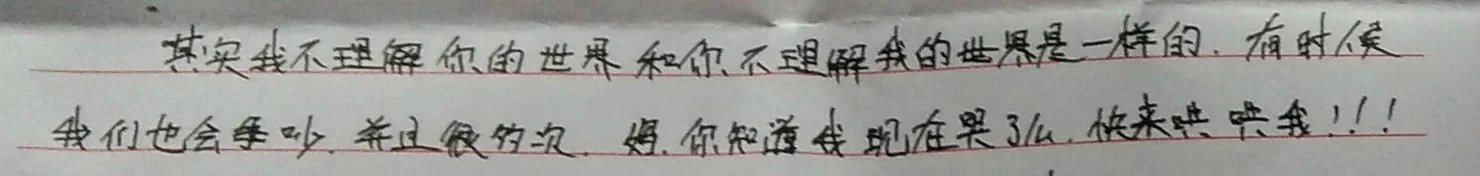 其实我不理解你的世界和你不理解我的世界是一样的.有时候
我们也会争吵.并且很多次.妈.你知道我现在哭了么.快来哄哄我!!!